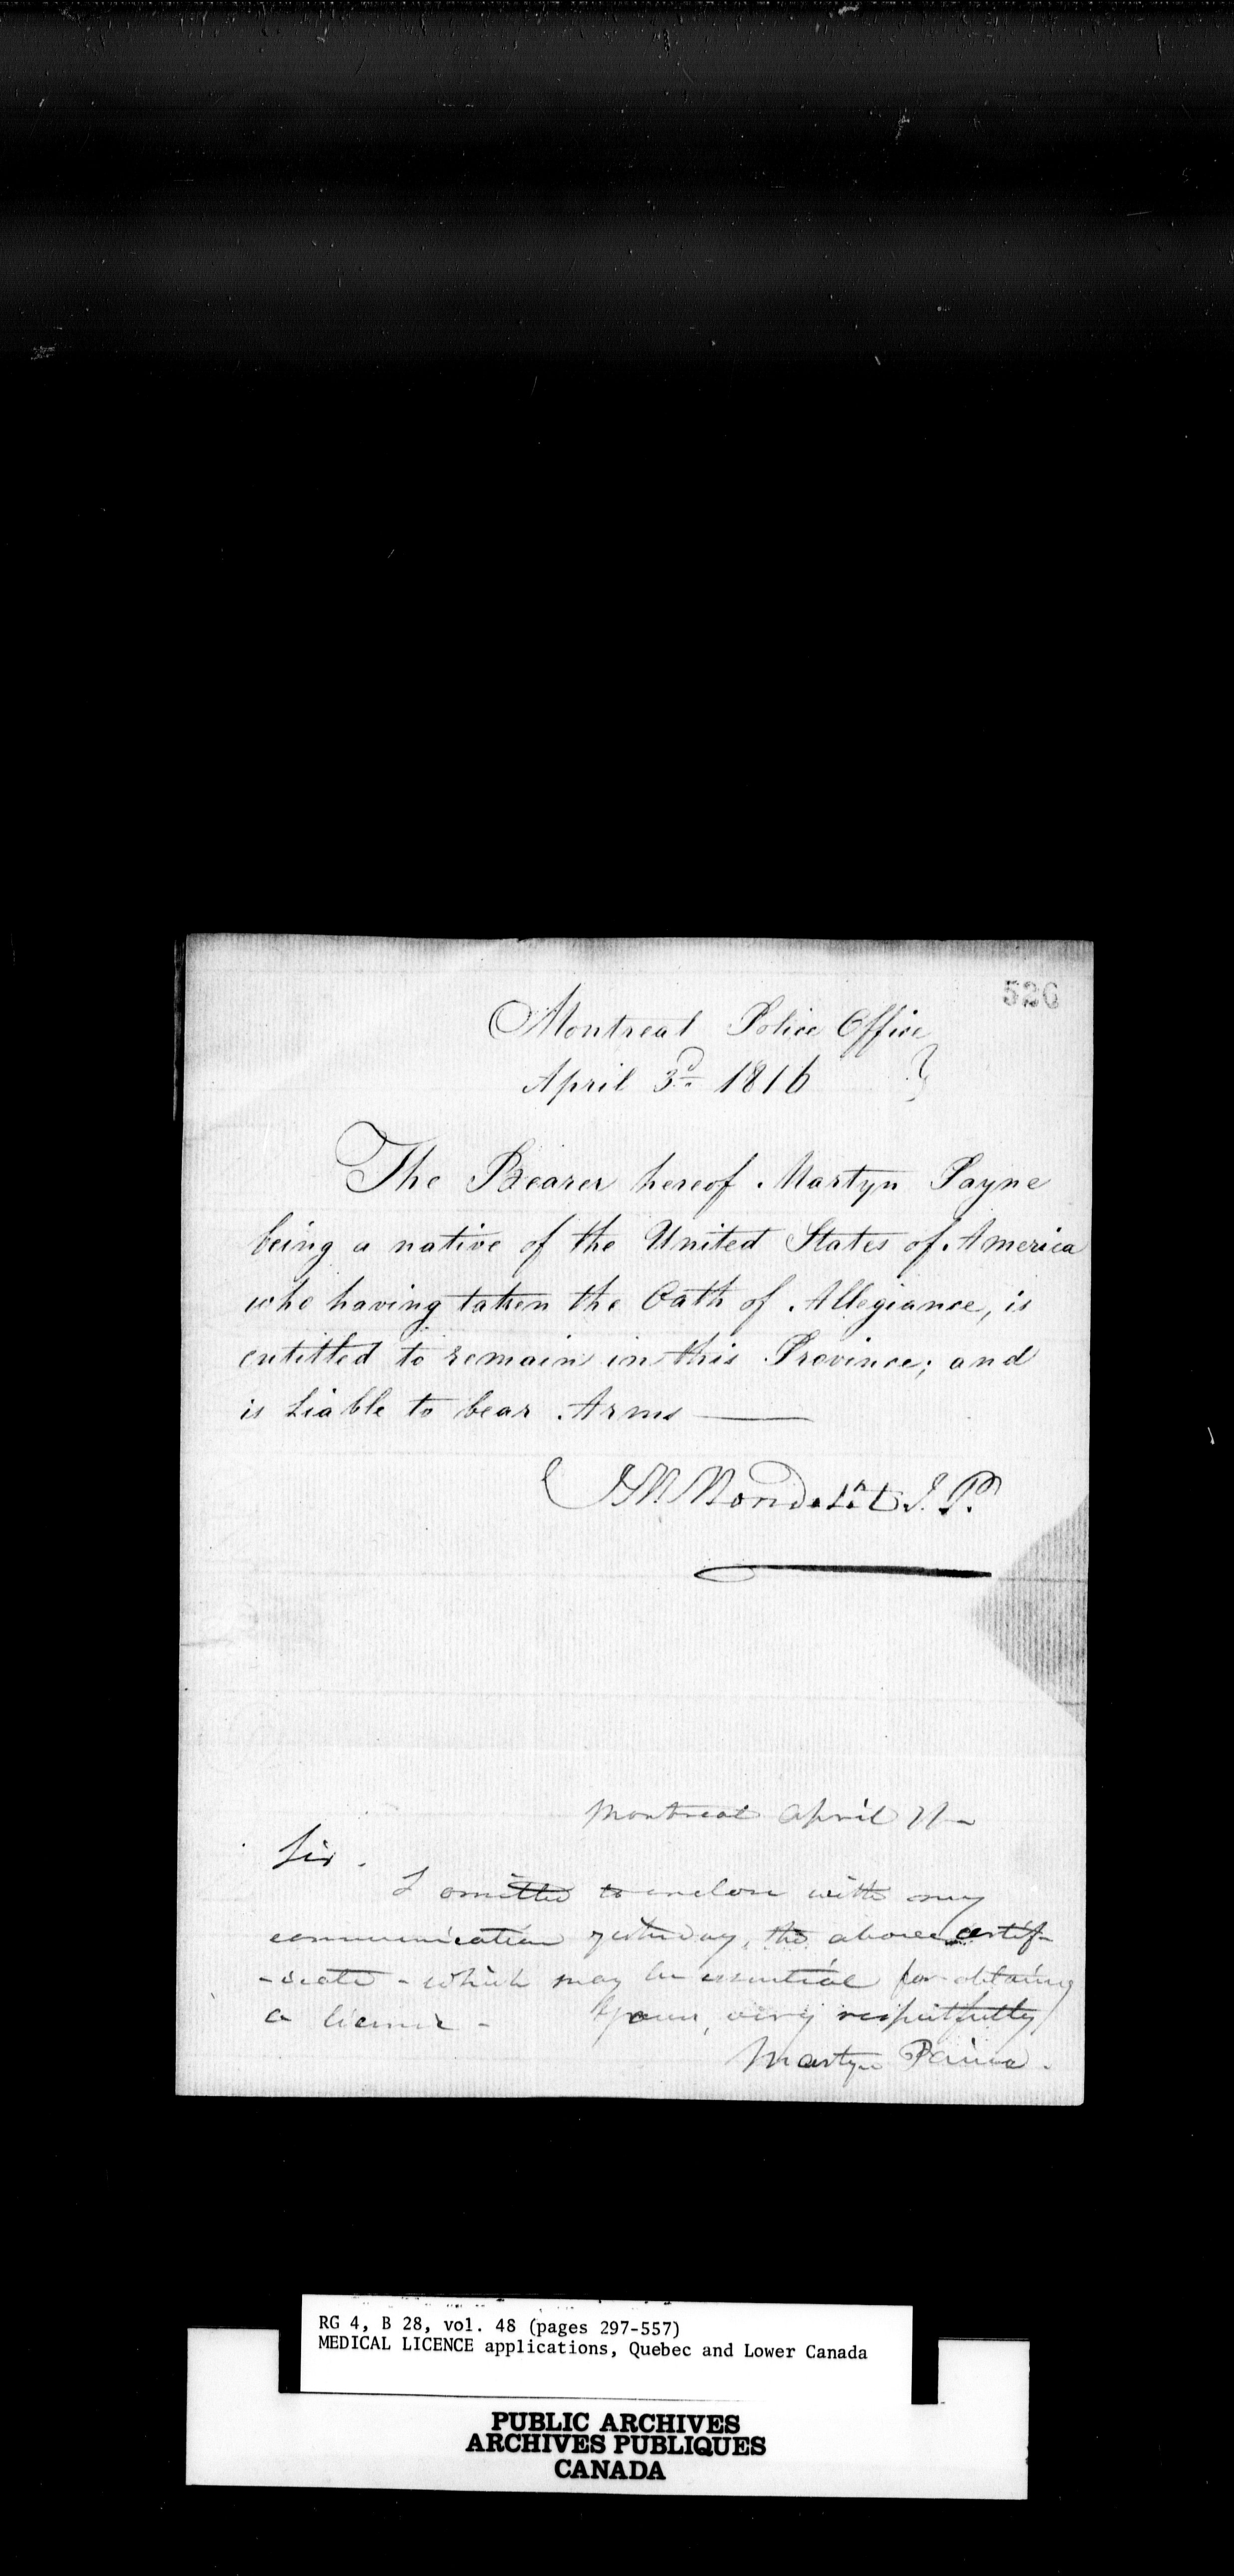 526
Montreal Police Office
April 3d 1816 }
The Bearer hereof Martyn Payne
being a native of the United States of America
who having taken the Oath of Allegiance, is
entitled to remain in this Province; and
is Liable to bear Arms
JM Mondelet J. P.
Montreal April 11
Sir.
I omitted to inclose with my
communication yesterday, the above certif-
-icate - which may be essential for obtaining
a licence - Yours, very respectfully
Martyn Paine.
RG 4, B 28, vol. 48 (pages 297-557)
MEDICAL LICENCE applications, Quebec and Lower Canada
PUBLIC ARCHIVES
ARCHIVES PUBLIQUES
CANADA